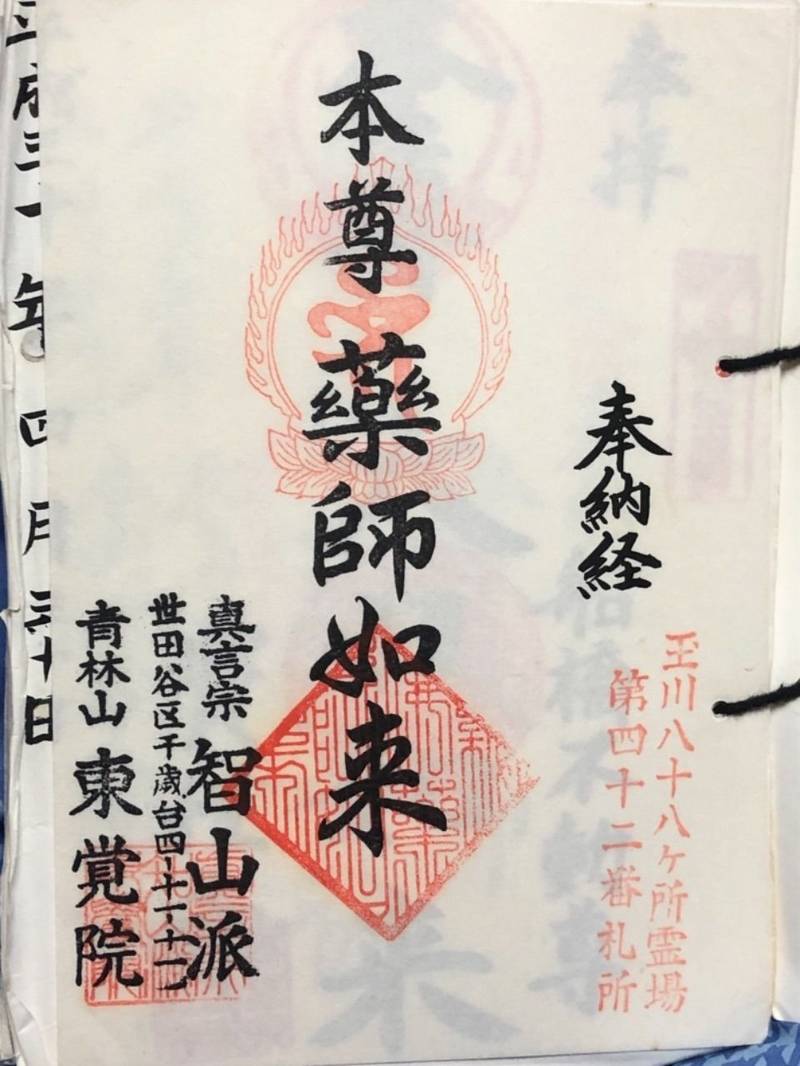 玉川八十八ヶ所霊場
第四十二番札所
奉納経
本尊薬師如来
真言宗 智山派
世田谷区千歳台四-十一-十一
青林山 東覚院
年四月三十日